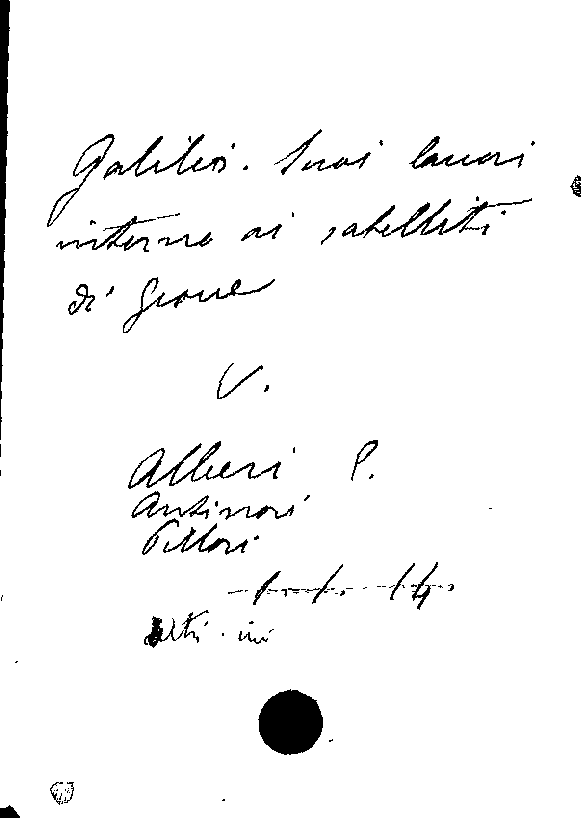 Galilei. Suoi lavori
intorno ai satelliti
di Giove
V.
Alberi P.
Antinori
Vittori